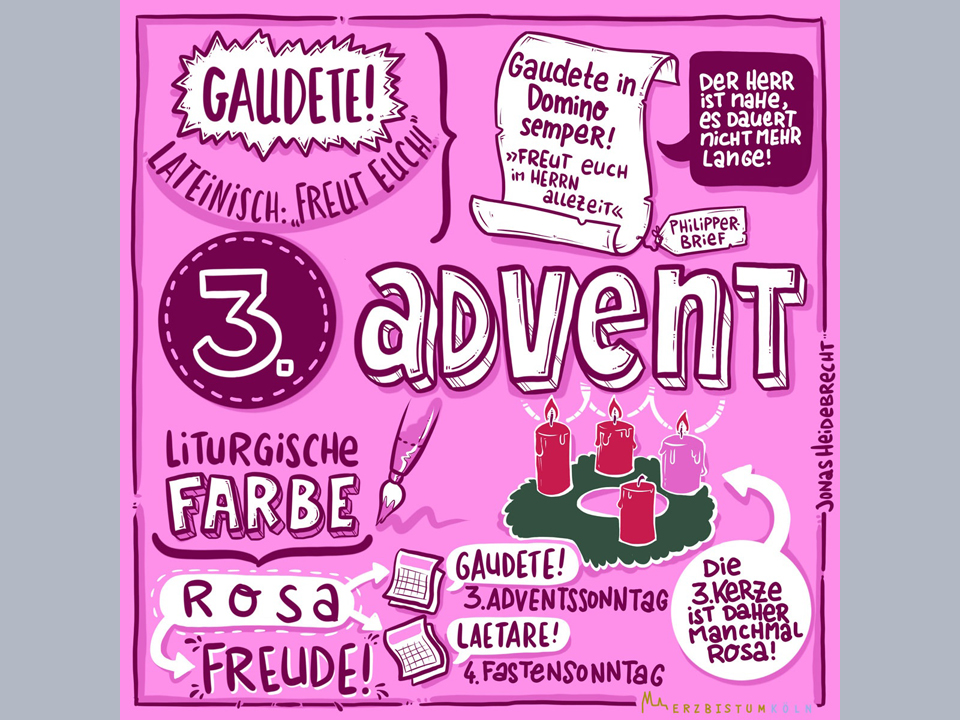 GAUDETE!
LATEINISCH: „FREUT EUCH!“
Gaudete in
Domino
semper!
»FREUT EUCH
im HERRN
allezeit«
PHILIPPER-
BRIEF
DER HERR
IST NAHE,
ES DAUERT
NICHT MEHR
LANGE!
3. ADVENT
LITURGISCHE
FARBE
ROSA
FREUDE!
GAUDETE!
3. ADVENTSSONNTAG
LAETARE!
4. FASTENSONNTAG
Die
3. KERZE
IST DAHER
MANCHMAL
ROSA!
JONAS HEIDEBRECHT
ERZBISTUMKÖLN